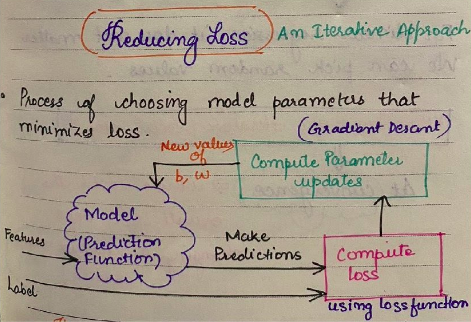 Reducing Loss An Iterative Approach
• Process of choosing model parameters that
minimizes loss.
(Gradient Descent)
New values
of
b, w
Compute Parameter
updates
Model
(Prediction
Function)
Features
Make
Predictions
Compute
loss
Label
using loss function